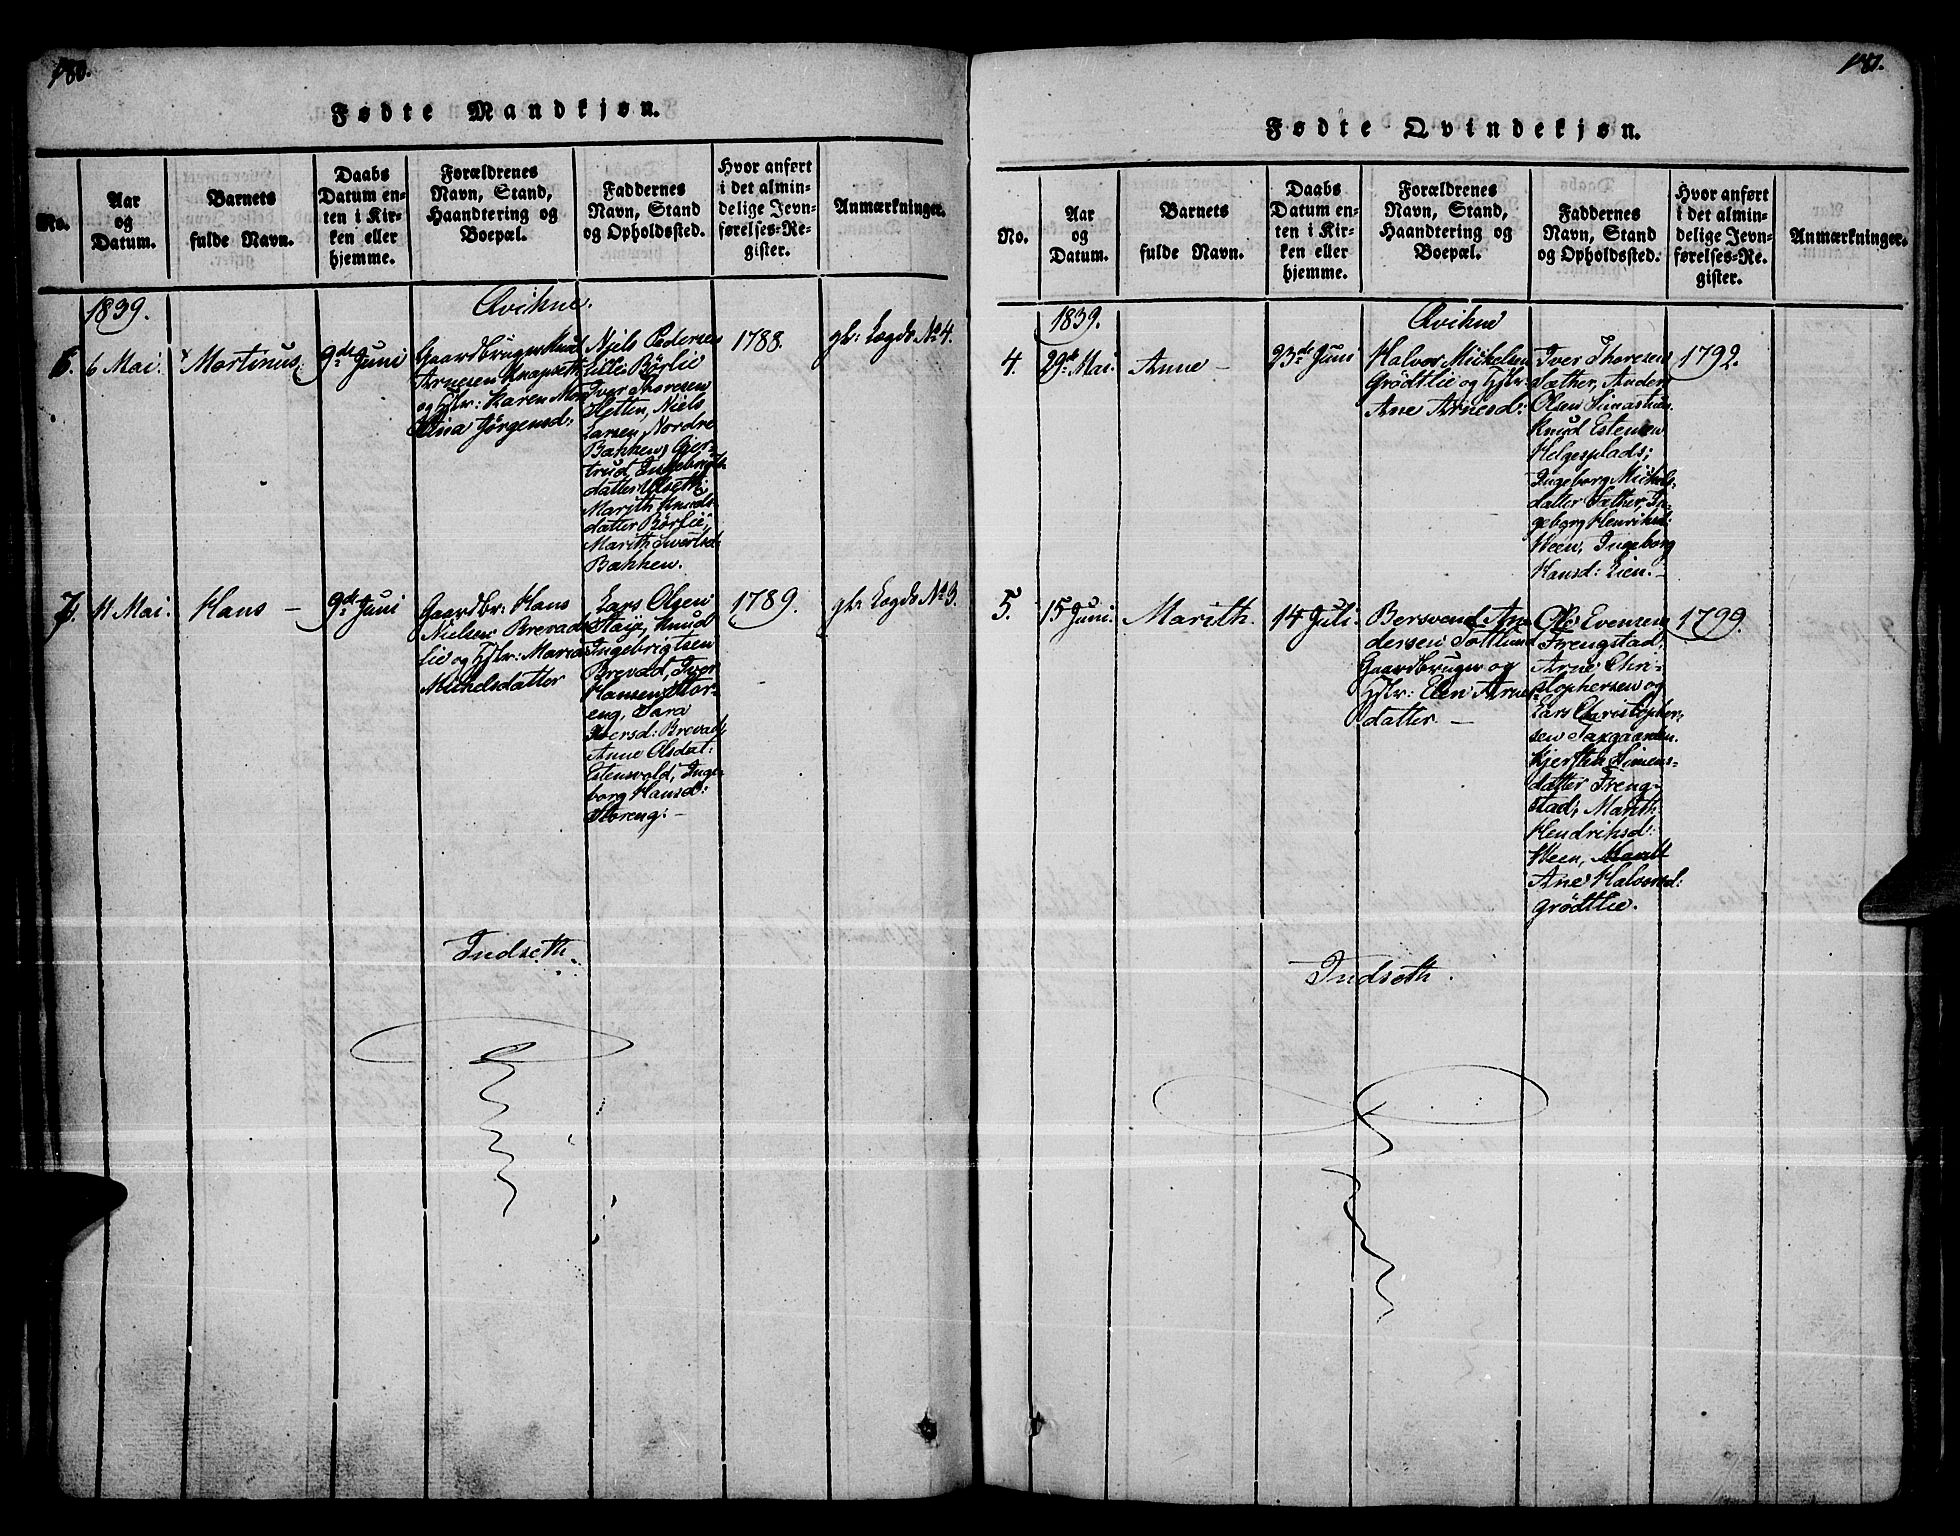 180.
Fødte Mandkjøn.
No.
Aar
og
Datum.
Barnets
fulde Navn.
Daabs
Datum en-
ten i Kir-
ken eller
hjemme.
Forældrenes
Navn, Stand,
Haandtering og
Boepæl.
Faddernes
Navn, Stand
og Opholdssted.
Hvor anført
i det almin-
delige Jevn-
førelses-Re-
gister.
Anmærkninger.
1839.
Qvikne.
6.
6 Mai.
Martinus,
9de Juni
Gaardbruger Knud
Arnesen Knapseth
og Hstr: Karen Mar
Stina Jörgensd:
Niels Pedersen
Lille Börlie
Iver Thoresen
Hetten, Niels
Larsen Nordre
Bakken, Gjer-
trud Ingebrigts
datter Volseth,
Marith Knuds
datter Börlie,
Marith Sivertsd:
Bakken.
1788.
gl: Lægds No 4.
7.
11 Mai.
Hans —
9de Juni
Gaardbr: Hans
Nielsen Brevads
lie og Hstr: Maria
Mikelsdatter
Lars Olsen
Staije, Knud
Ingebrigtsen
Brevad, Iver
Hansen Stor-
eng, Sara
Iversd: Brevad,
Anne Olsdat:
Estensvold, Inge-
borg Hansd:
Storeng: —
1789.
gl: Lægds No 3.
Indseth.
181.
Fødte Qvindekjøn.
No.
Aar
og
Datum.
Barnets
fulde Navn.
Daabs
Datum en-
ten i Kir-
ken eller
hjemme.
Forældrenes
Navn, Stand,
Haandtering og
Boepæl.
Faddernes
Navn, Stand
og Opholdssted.
Hvor anført
i det almin-
delige Jevn-
førelses-Re-
gister.
Anmærkninger.
1839.
Qvikne
4.
29de Mai.
Anne —
23de Juni
Halvor Mickelsen
Grödtlie og Hstr:
Ane Arnesd:
Iver Thoresen
Sæther, Anders
Olsen
Knud Estensen
Helgesplads;
Ingeborg Mickels-
datter Sæther, In-
geborg Henriksd:
Ween, Ingeborg
Hansd: Lien. —
1792.
5.
15 Juni.
Marith.
14 Juli.
Bersvend An-
dersen Tollund
Gaardbruger og
Hstr: Elen Arnes-
datter. —
Ole Evensen
Frengstad,
Arne Chri-
stophersen og
Lars Christopher-
sen Faxgaarden.
Kjersten Simens-
datter Freng-
stad, Marith
Hendriksd:
Ween, Marit
Ane Halvorsd:
Grödtlie.
1799.
Indseth.